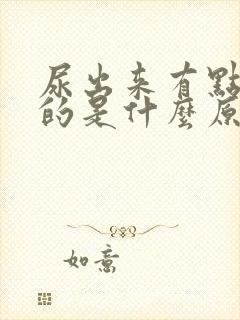 尿出来有點
的是什麼原
如意